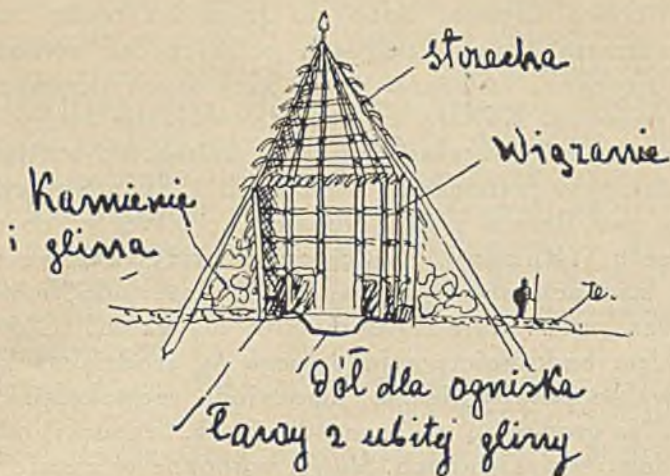 strzecha
Wiązanie
Kamienie
i glina
dół dla ogniska
Ławy z ubitej gliny